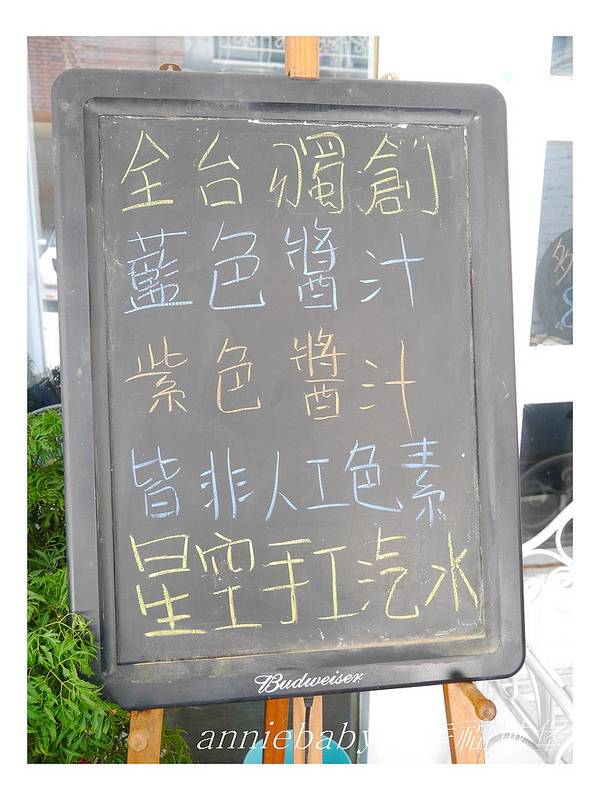 全台獨創
藍色醬汁
紫色醬汁
皆非人工色素
星空手工汽水
Budweiser
多
anniebaby
福 堡